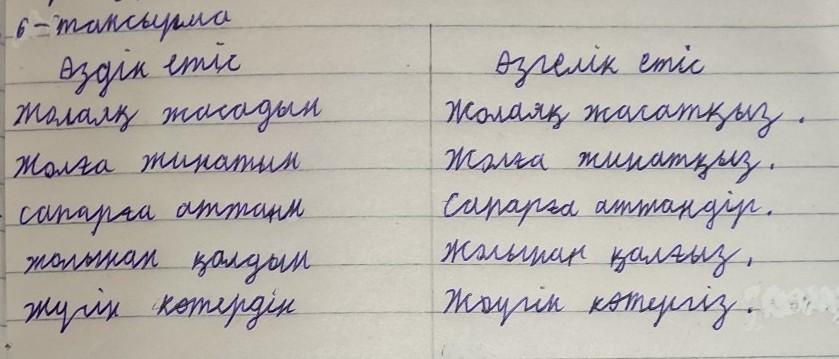 6-тапсырма
Өздік етіс Өзгелік етіс
Жолаяқ жасадын Жолаяқ жасатқыз.
Жолға жинатын Жолға жинатқыз.
сапарға аттанн Сапарға аттандір.
жолынан қалдын Жолынан қалғыз.
жүгін көтердін Жүгін көтергіз.